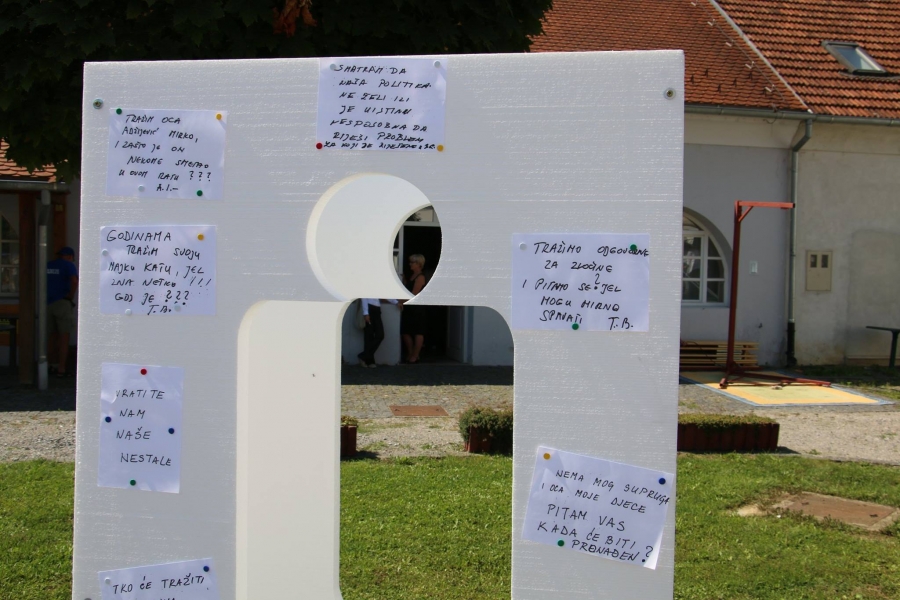 SMATRAM DA
NAŠA POLITIKA
NE ŽELI ILI
JE UISTINU
NESPOSOBNA DA
RIJEŠI PROBLEM
ZA KOJI JE
TRAŽIM OCA
MIRKO,
I ZAŠTO JE ON
NEKOME SMETAO
U OVOM RATU ???
A.I.-
GODINAMA
TRAŽIM SVOJU
MAJKU KATU, JEL
ZNA NETKO !!!
GDJE JE ???
T.B.
TRAŽIMO ODGOVORNE
ZA ZLOČINE
I PITAMO SE JEL ?
MOGU MIRNO
SPAVATI T.B.
VRATITE
NAM
NAŠE
NESTALE
NEMA MOG SUPRUGA
I OCA MOJE DJECE
PITAM VAS
KADA ĆE BITI
PRONAĐEN ?
TKO ĆE TRAŽITI